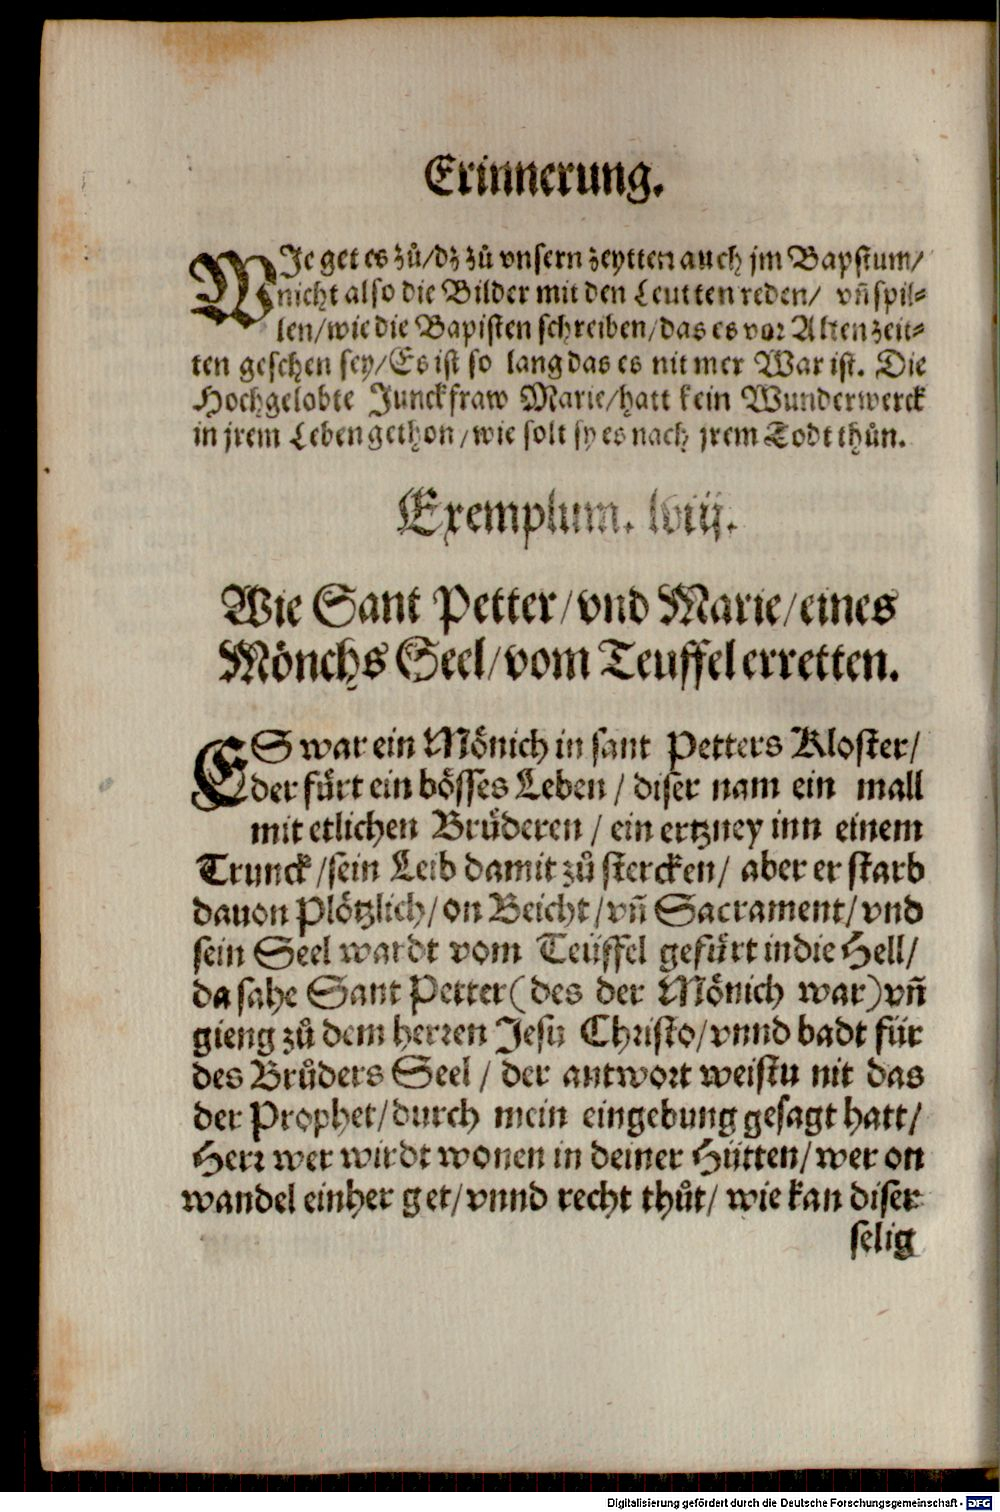 Erinnerung.
WIe get es zů/dz zů vnsern zeytten auch jm Bapstum/
nicht also die Bilder mit den Leutten reden/ vñ spil⸗
len/wie die Bapisten schreiben/das es vor Alten zeit⸗
ten geschen sey/Es ist so lang das es nit mer War ist. Die
Hochgelobte Junckfraw Marie/hatt kein Wunderwerck
in jrem Leben gethon/wie solt sy es nach jrem Todt thůn.
Exemplum. lviij.
Wie Sant Petter/vnd Marie/eines
Mönchs Seel/vom Teuffel erretten.
ES war ein Mönich in sant Petters Kloster/
der fůrt ein bösses Leben / diser nam ein mall
mit etlichen Brůderen / ein ertzney inn einem
Trunck/sein Leib damit zů stercken/ aber er starb
dauon Plötzlich/on Beicht/vñ Sacrament/vnd
sein Seel wardt vom Teüffel gefůrt in die Hell/
da sahe Sant Petter(des der Mönich war)vñ
gieng zů dem herren Jesu Christo/vnnd badt für
des Brůders Seel / der antwort weistu nit das
der Prophet/durch mein eingebung gesagt hatt/
Herr wer wirdt wonen in deiner Hütten/wer on
wandel einher get/vnnd recht thůt/ wie kan diser
selig
Digitalisierung gefördert durch die Deutsche Forschungsgemeinschaft - DFG